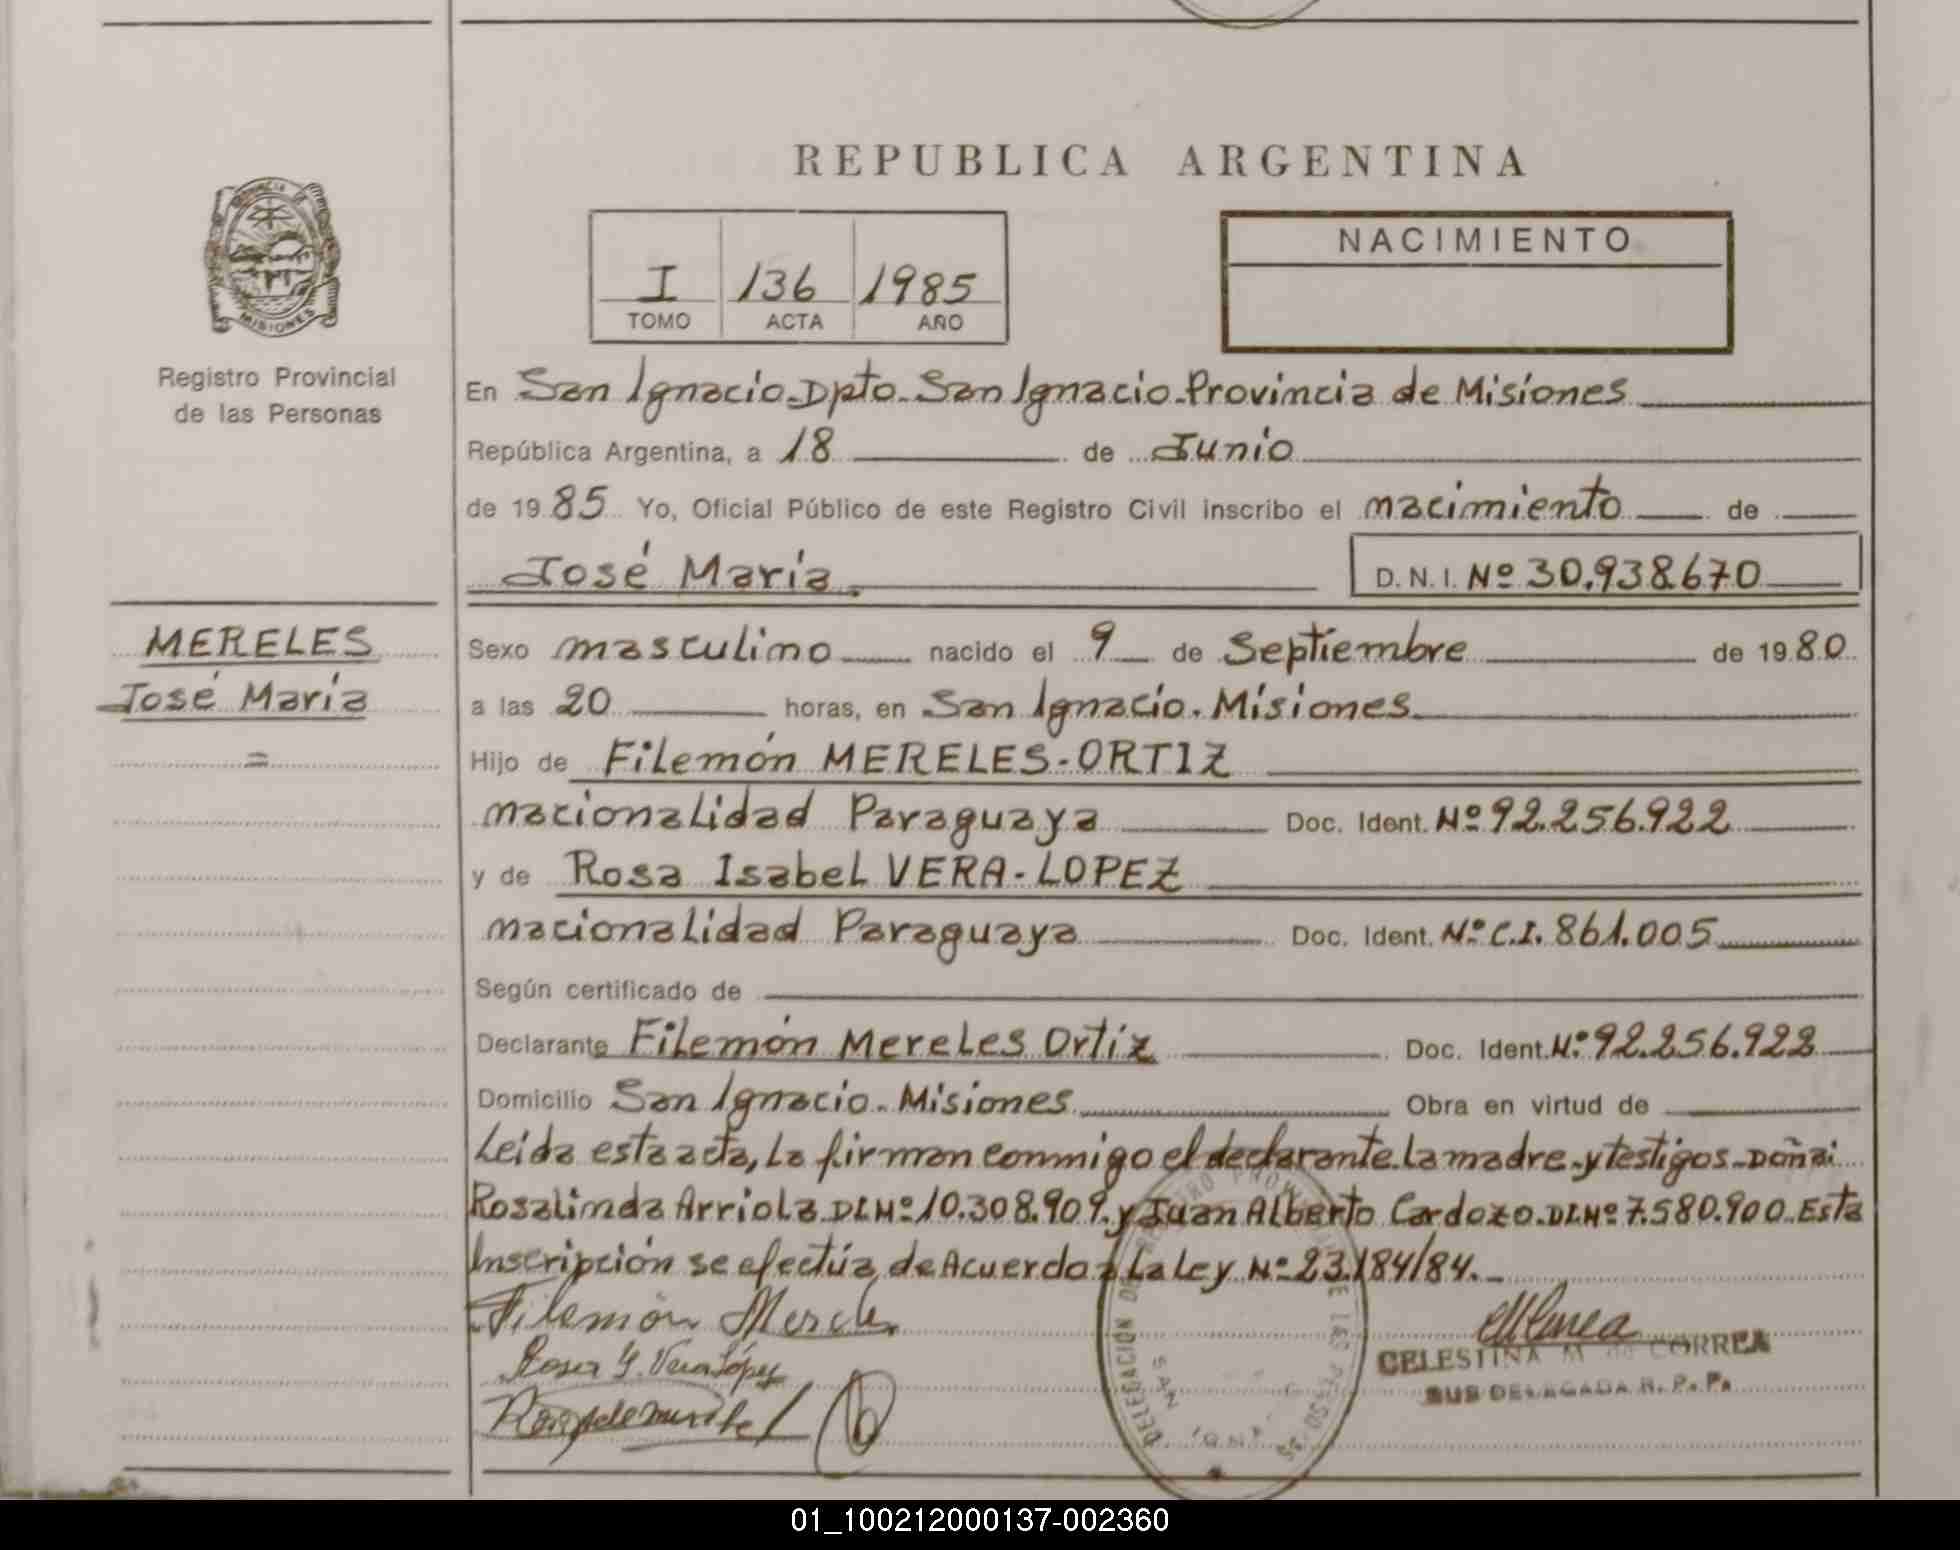 REPUBLICA ARGENTINA
PROVINCIA DE
MISIONES
Registro Provincial
de las Personas
I 136 1985
TOMO ACTA AÑO
NACIMIENTO
En San Ignacio-Dpto-San Ignacio-Provincia de Misiones
República Argentina, a 18 de Junio
de 1985 Yo, Oficial Público de este Registro Civil inscribo el nacimiento de
José María. D.N.I. Nº 30.938.670
MERELES
José María
=
Sexo masculino nacido el 9 de Septiembre de 1980
a las 20 horas, en San Ignacio. Misiones
Hijo de Filemón MERELES-ORTIZ
nacionalidad Paraguaya Doc. Ident. Nº 92.256.922
y de Rosa Isabel VERA-LOPEZ
nacionalidad Paraguaya Doc. Ident. Nº C.I. 861.005
Según certificado de
Declarante Filemón Mereles Ortiz Doc. Ident. Nº 92.256.922
Domicilio San Ignacio. Misiones Obra en virtud de
Leida esta acta, la firman conmigo el declarante. la madre-y testigos-Doña
Rosalinda Arriola DI Nº 10.308.909. y Juan Alberto Cardozo. DI. Nº 7.580.900. Esta
Inscripción se efectúa de Acuerdo a la Ley Nº 23.184/84.
Filemón
Rosa Y. Vera López
CELESTINA M. de CORREA
SUB DELEGADA R. P. P.
DELEGACIÓN DE REGISTRO PROVINCIAL DE LAS PERSONAS
SAN IGNACIO
01_100212000137-002360